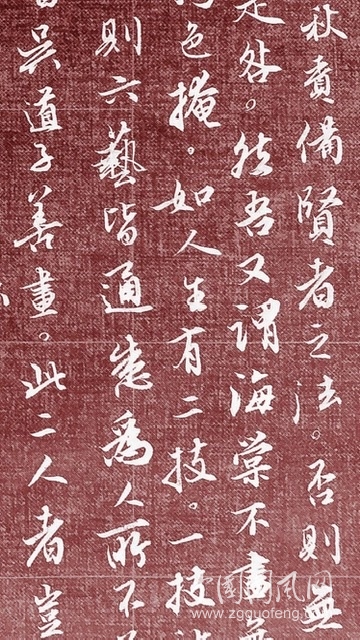 秋責備賢者之法。否則無
是咎。然吾又謂海棠不盡無
色掩。如人生有二技。一技
則六藝皆通。悉為人所不
吳道子善畫。此二人者豈
中国国风网
www.zgguofeng.com